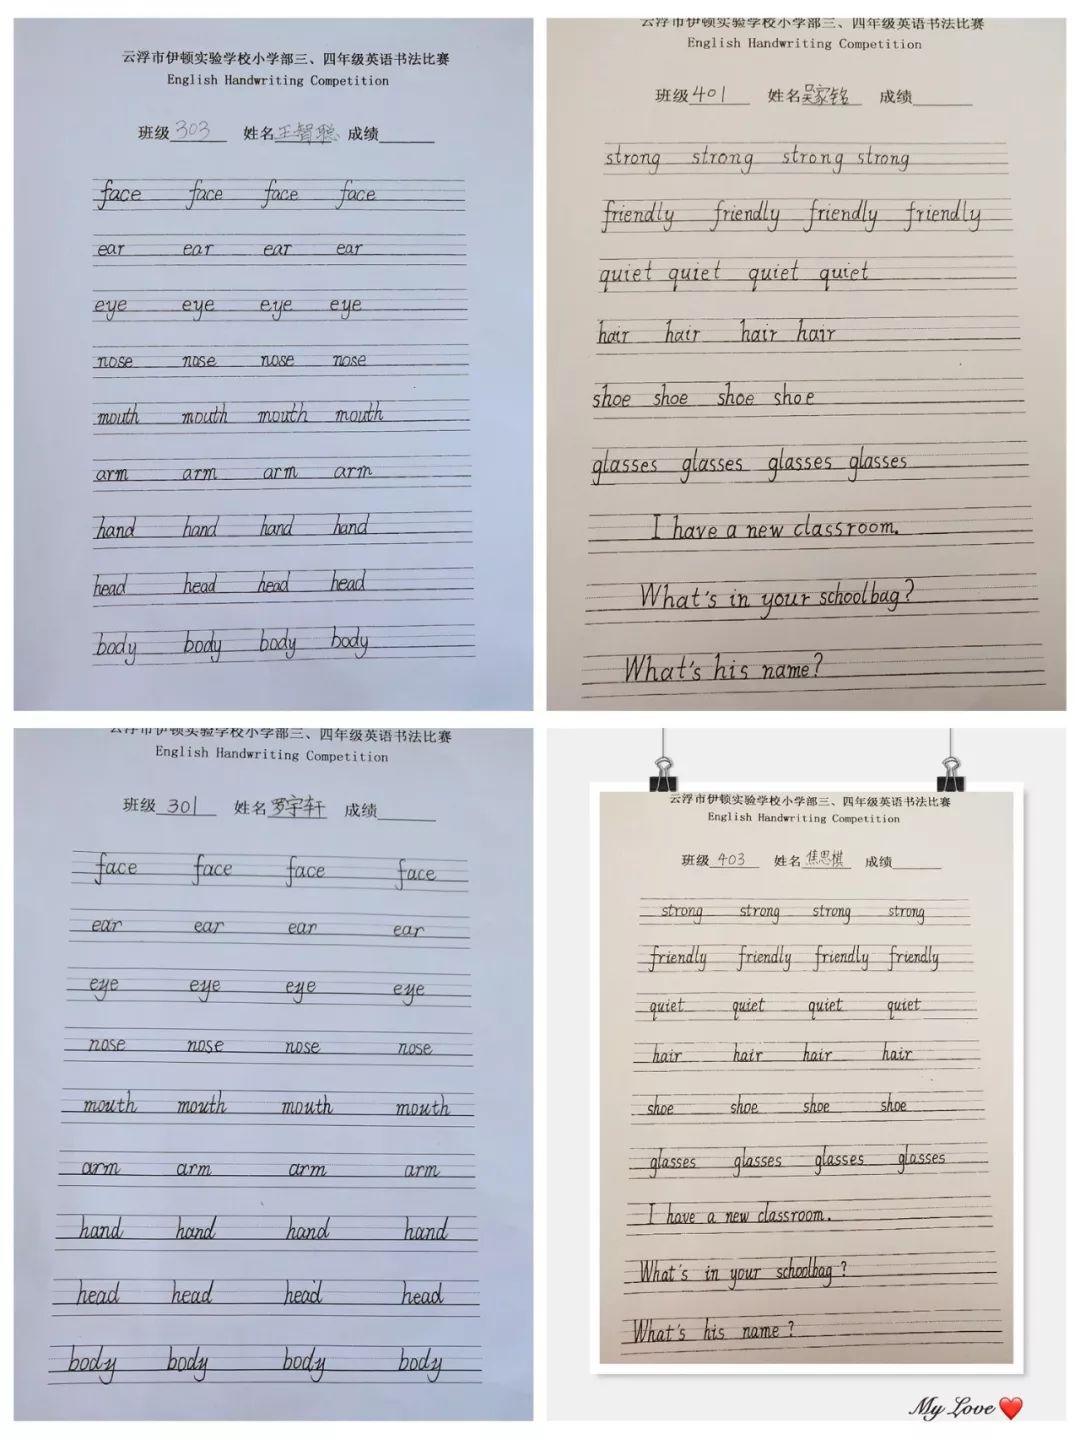 云浮市伊顿实验学校小学部三、四年级英语书法比赛
English Handwriting Competition
班级 303 姓名 王智聪 成绩
face face face face
ear ear ear ear
eye eye eye eye
nose nose nose nose
mouth mouth mouth mouth
arm arm arm arm
hand hand hand hand
head head head head
body body body body
云浮市伊顿实验学校小学部三、四年级英语书法比赛
English Handwriting Competition
班级 401 姓名 吴家铭 成绩
strong strong strong strong
friendly friendly friendly friendly
quiet quiet quiet quiet
hair hair hair hair
shoe shoe shoe shoe
glasses glasses glasses glasses
I have a new classroom.
What's in your schoolbag?
What's his name?
云浮市伊顿实验学校小学部三、四年级英语书法比赛
English Handwriting Competition
班级 301 姓名 罗宇轩 成绩
face face face face
ear ear ear ear
eye eye eye eye
nose nose nose nose
mouth mouth mouth mouth
arm arm arm arm
hand hand hand hand
head head head head
body body body body
云浮市伊顿实验学校小学部三、四年级英语书法比赛
English Handwriting Competition
班级 403 姓名 焦思棋 成绩
strong strong strong strong
friendly friendly friendly friendly
quiet quiet quiet quiet
hair hair hair hair
shoe shoe shoe shoe
glasses glasses glasses glasses
I have a new classroom.
What's in your schoolbag?
What's his name?
My Love